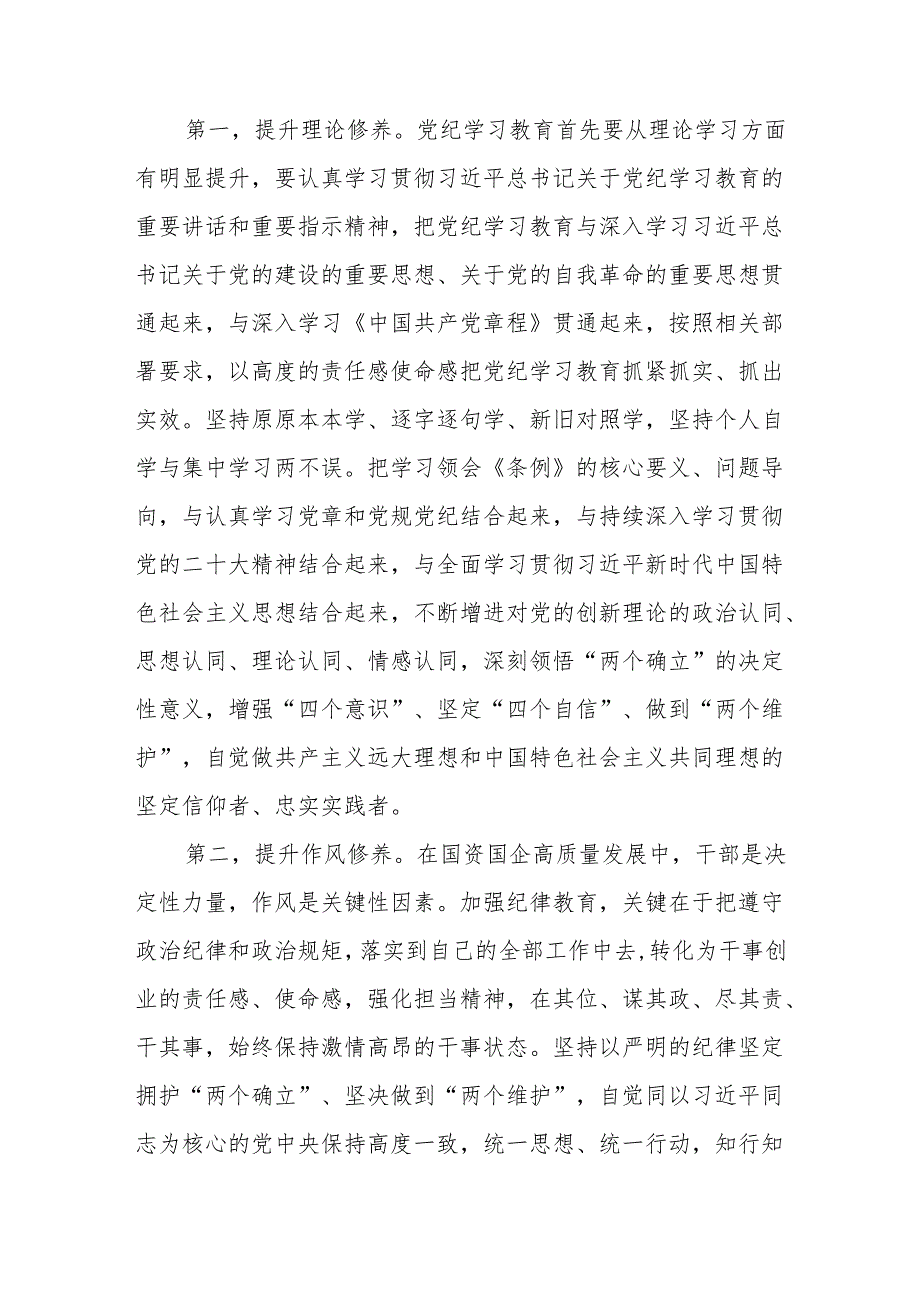 第一，提升理论修养。党纪学习教育首先要从理论学习方面
有明显提升，要认真学习贯彻习近平总书记关于党纪学习教育的
重要讲话和重要指示精神，把党纪学习教育与深入学习习近平总
书记关于党的建设的重要思想、关于党的自我革命的重要思想贯
通起来，与深入学习《中国共产党章程》贯通起来，按照相关部
署要求，以高度的责任感使命感把党纪学习教育抓紧抓实、抓出
实效。坚持原原本本学、逐字逐句学、新旧对照学，坚持个人自
学与集中学习两不误。把学习领会《条例》的核心要义、问题导
向，与认真学习党章和党规党纪结合起来，与持续深入学习贯彻
党的二十大精神结合起来，与全面学习贯彻习近平新时代中国特
色社会主义思想结合起来，不断增进对党的创新理论的政治认同、
思想认同、理论认同、情感认同，深刻领悟“两个确立”的决定
性意义，增强“四个意识”、坚定“四个自信”、做到“两个维
护”，自觉做共产主义远大理想和中国特色社会主义共同理想的
坚定信仰者、忠实实践者。
第二，提升作风修养。在国资国企高质量发展中，干部是决
定性力量，作风是关键性因素。加强纪律教育，关键在于把遵守
政治纪律和政治规矩，落实到自己的全部工作中去,转化为干事创
业的责任感、使命感，强化担当精神，在其位、谋其政、尽其责、
干其事，始终保持激情高昂的干事状态。坚持以严明的纪律坚定
拥护“两个确立”、坚决做到“两个维护”，自觉同以习近平同
志为核心的党中央保持高度一致，统一思想、统一行动，知行知